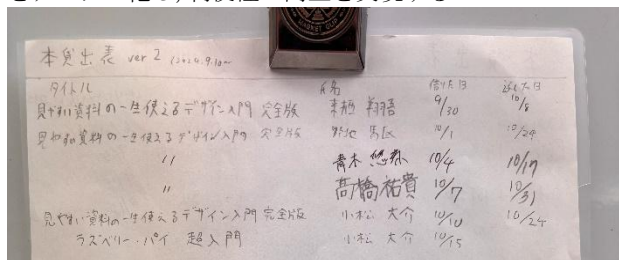 本貸出表 ver 2 (2024.9.10~
タイトル 氏名 借りた日 返した日
見やすい資料の一生使えるデザイン入門 完全版 翔悟 9/30 10/8
見やすい資料の一生使えるデザイン入門 完全版 10/1 10/29
〃 青木 悠 10/4 10/17
〃 高橋祐貴 10/7 10/31
見やすい資料の一生使えるデザイン入門 完全版 小松 大介 10/10 10/24
ラズベリー・パイ 超入門 小松 大介 10/15